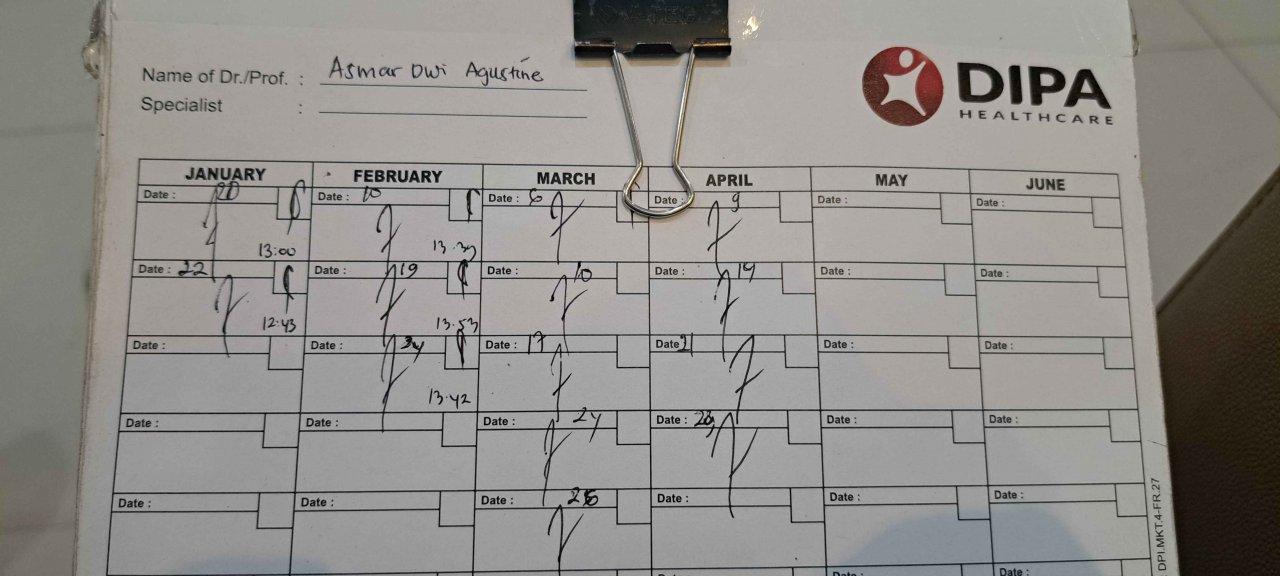 Name of Dr./Prof. : Asmar Dwi Agustine
Specialist :
DIPA
HEALTHCARE
JANUARY FEBRUARY MARCH APRIL MAY JUNE
Date : 20 Date : 10 Date : 6 Date : 9 Date : Date :
13:00 13.39
Date : 22 Date : 19 Date : 10 Date : 14 Date : Date :
12:43 13.53
Date : Date : 24 Date : 17 Date : 21 Date : Date :
13.42
Date : Date : Date : 24 Date : 28 Date : Date :
Date : Date : Date : 26 Date : Date : Date :
DPI.MKT.4-FR.27